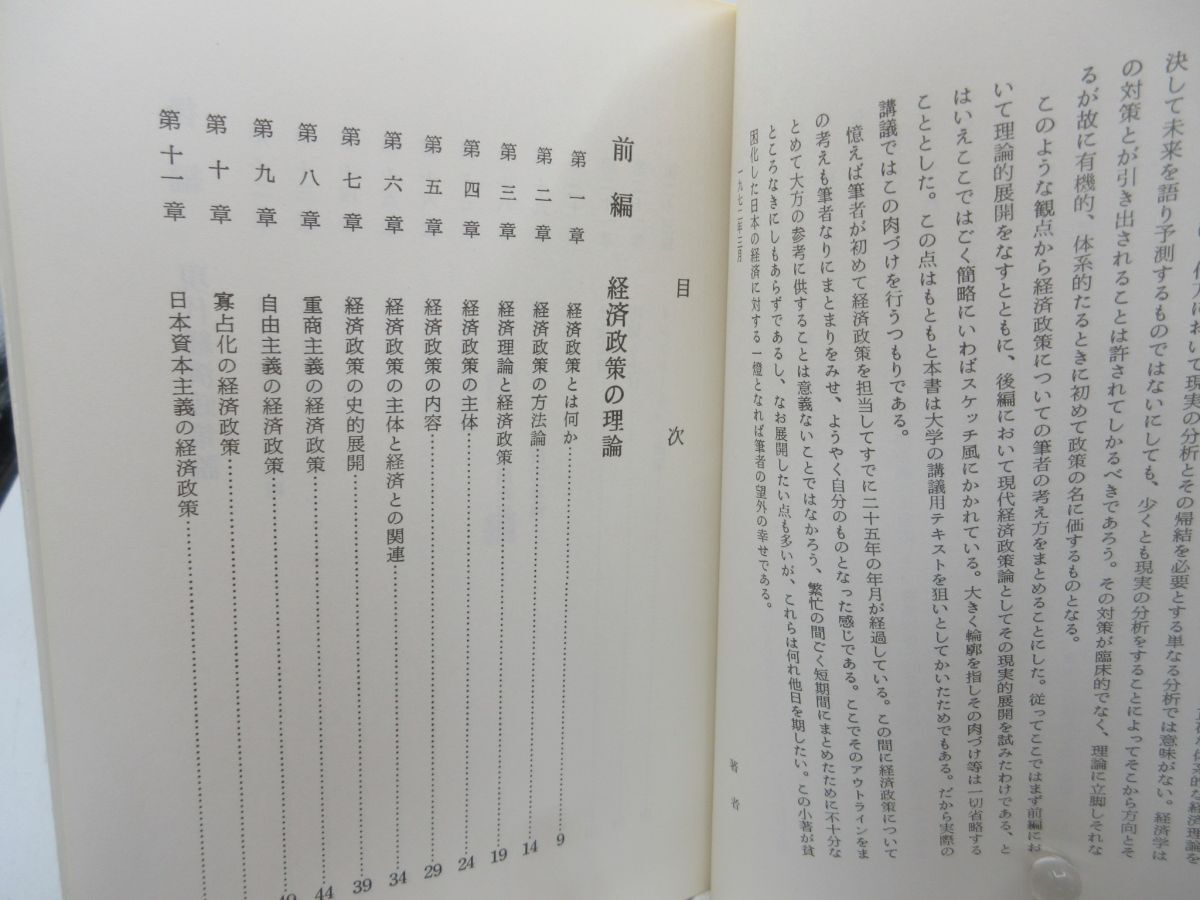 決して未来を語り予測するものではないにしても、少くとも現実の分析をすることによってそこから方向とそ
の対策とが引き出されることは許されてしかるべきであろう。その対策が臨床的でなく、理論に立脚しそれな
るが故に有機的、体系的たるときに初めて政策の名に価するものとなる。
このような観点から経済政策についての筆者の考え方をまとめることにした。従ってここではまず前編にお
いて理論的展開をなすとともに、後編において現代経済政策論としてその現実的展開を試みたわけである、と
はいえここではごく簡略にいわばスケッチ風にかかれている。大きく輪廓を指しその肉づけ等は一切省略する
こととした。この点はもともと本書は大学の講義用テキストを狙いとしてかいたためでもある。だから実際の
講義ではこの肉づけを行うつもりである。
憶えば筆者が初めて経済政策を担当してすでに二十五年の年月が経過している。この間に経済政策について
の考えも筆者なりにまとまりをみせ、ようやく自分のものとなった感じである。ここでそのアウトラインをま
とめて大方の参考に供することは意義ないことではなかろう、繁忙の間ごく短期間にまとめたために不十分な
ところなきにしもあらずであるし、なお展開したい点も多いが、これらは何れ他日を期したい。この小著が貧
困化した日本の経済に対する一燈となれば筆者の望外の幸せである。
一九七二年三月
著者
目次
前編 経済政策の理論
第一章 経済政策とは何か……9
第二章 経済政策の方法論……14
第三章 経済理論と経済政策……19
第四章 経済政策の主体……24
第五章 経済政策の内容……29
第六章 経済政策の主体と経済との関連……34
第七章 経済政策の史的展開……39
第八章 重商主義の経済政策……44
第九章 自由主義の経済政策……
第十章 寡占化の経済政策……
第十一章 日本資本主義の経済政策……